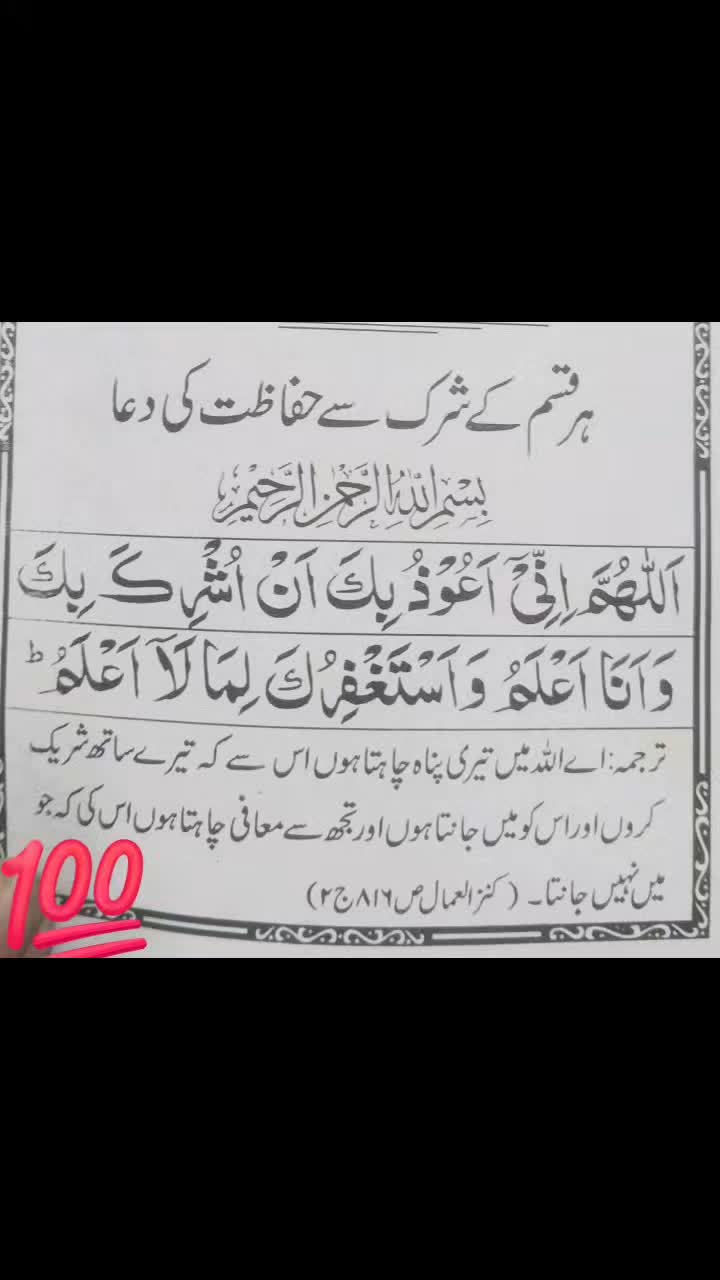 ہر قسم کے شرک سے حفاظت کی دعا
بِسْمِ اللّٰهِ الرَّحْمٰنِ الرَّحِيْمِ
اَللّٰهُمَّ اِنِّیْۤ اَعُوْذُ بِكَ اَنْ اُشْرِكَ بِكَ
وَاَنَا اَعْلَمُ وَاَسْتَغْفِرُكَ لِمَا لَاۤ اَعْلَمُ ؕ
ترجمہ: اے اللہ میں تیری پناہ چاہتا ہوں اس سے کہ تیرے ساتھ شریک
کروں اور اس کو میں جانتا ہوں اور تجھ سے معافی چاہتا ہوں اس کی کہ جو
میں نہیں جانتا۔ (کنز العمال ص ۸۱۶ ج ۲)
100